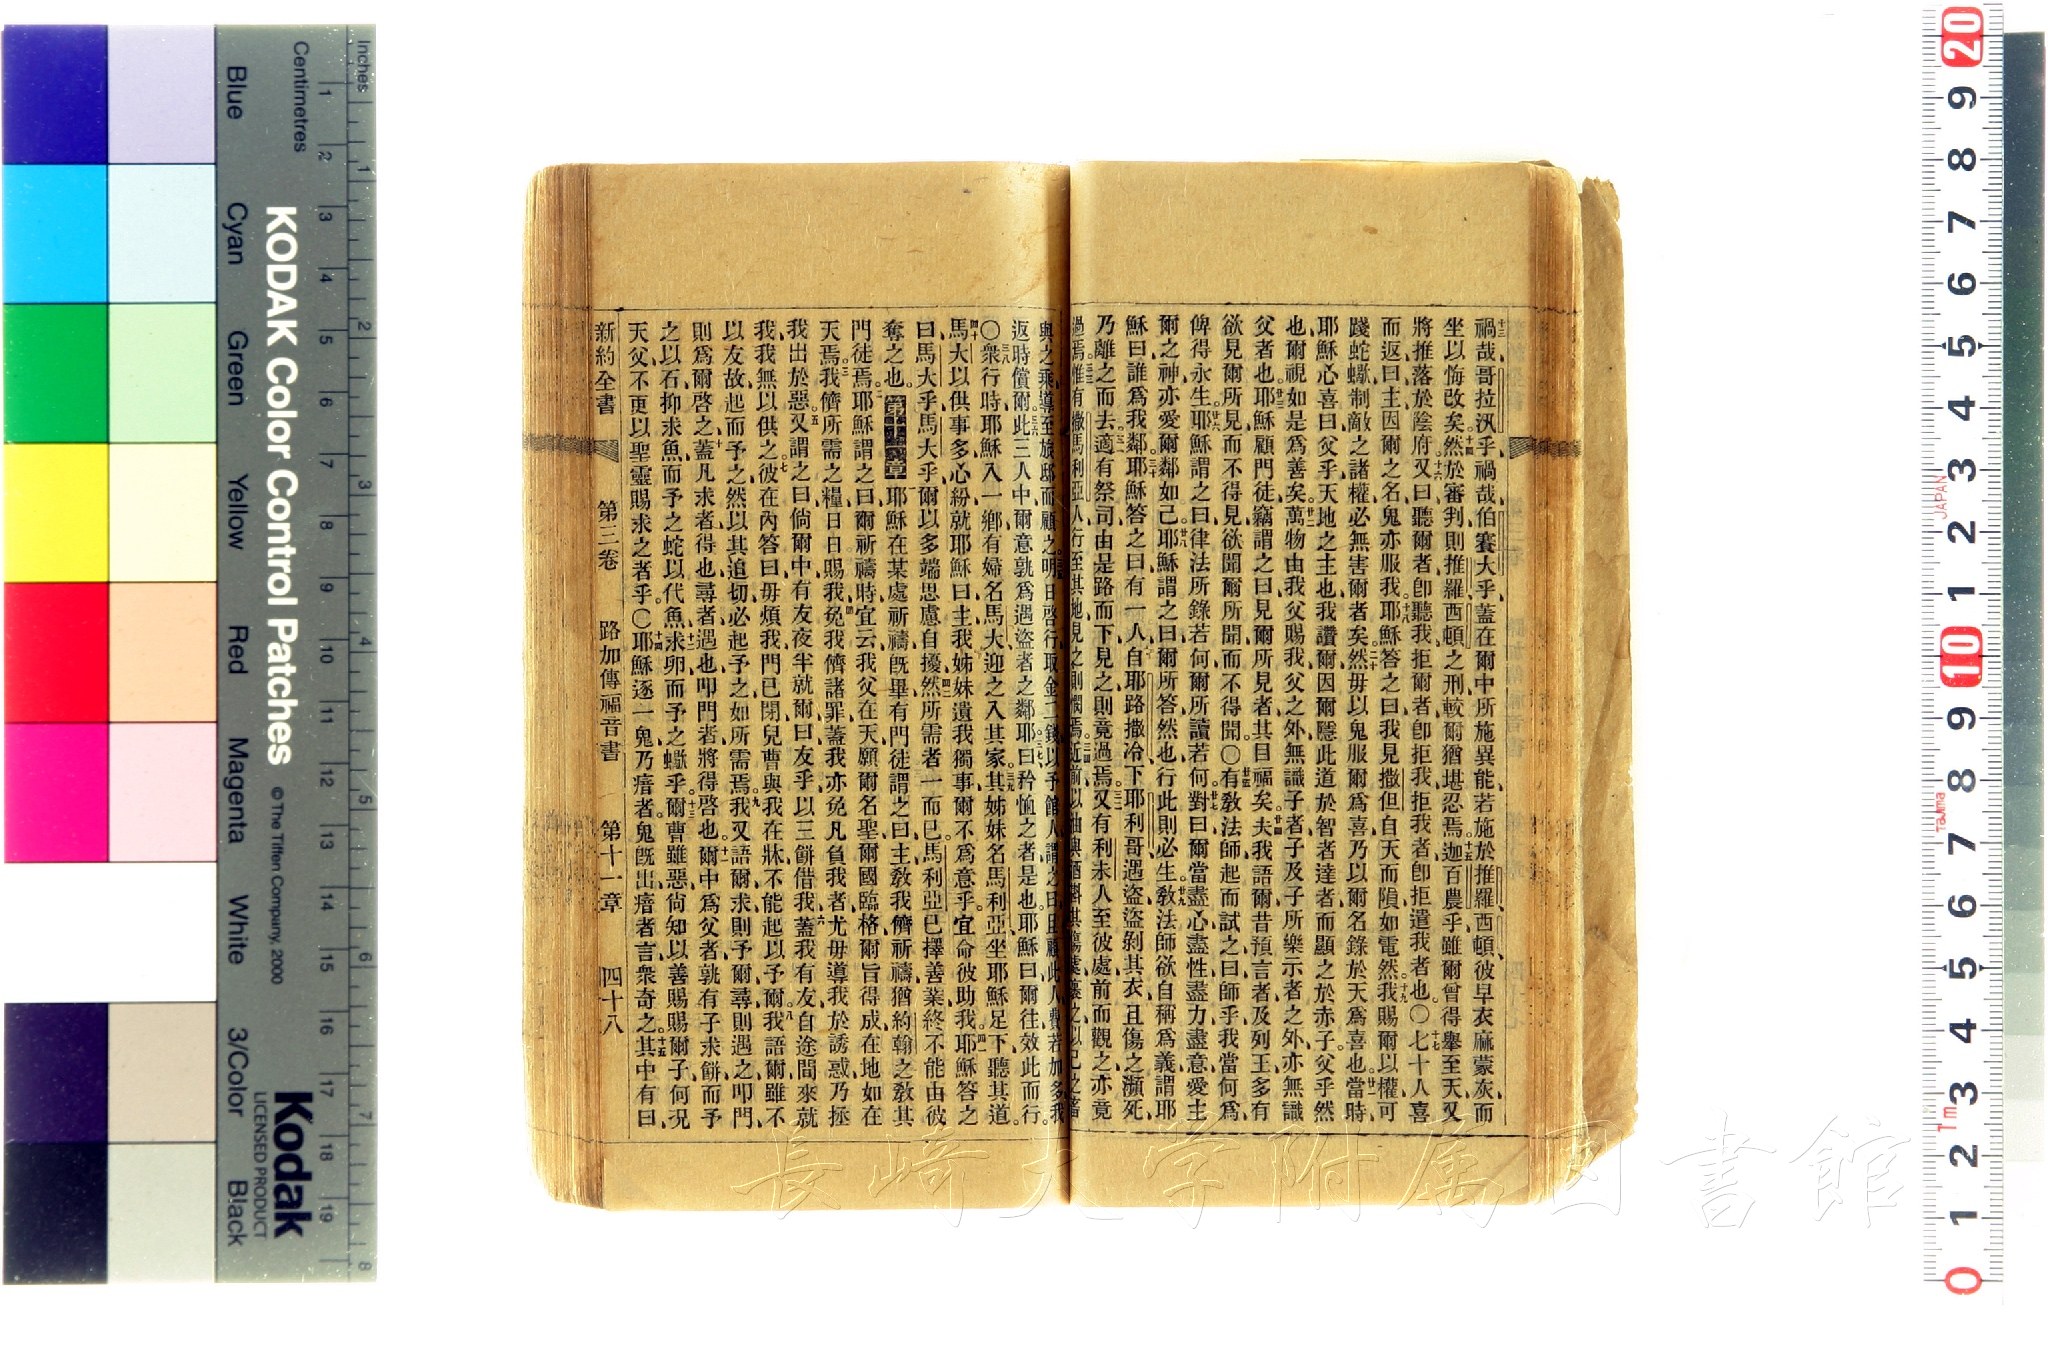 十三禍哉哥拉汛乎、禍哉伯賽大乎、蓋在爾中所施異能、若施於推羅西頓、彼早衣麻蒙灰而
坐以悔改矣、十四然於審判則推羅西頓之刑、較爾猶堪忍焉。十五迦百農乎、雖爾曾得舉至天、又
將推落於陰府、十六又曰、聽爾者卽聽我、拒爾者卽拒我、拒我者卽拒遣我者也。〇十七七十人喜
而返曰、主因爾之名、鬼亦服我、十八耶穌答之曰、我見撒但自天而隕如電然、十九我賜爾以權、可
踐蛇蠍、制敵之諸權、必無害爾者矣、二十然毋以鬼服爾爲喜、乃以爾名錄於天爲喜也、廿一當時
耶穌心喜曰、父乎、天地之主也、我讚爾、因爾隱此道於智者達者、而顯之於赤子、父乎、然
也、爾視如是爲善矣、廿二萬物由我父賜我、父之外無識子者、子及子所樂示者之外、亦無識
父者也、廿三耶穌顧門徒、竊謂之曰、見爾所見者、其目福矣、廿四夫我語爾、昔預言者及列王、多有
欲見爾所見而不得見、欲聞爾所聞而不得聞、〇廿五有教法師起而試之曰、師乎、我當何爲、
俾得永生、廿六耶穌謂之曰、律法所錄若何、爾所讀若何、廿七對曰、爾當盡心盡性盡力盡意愛主
爾之神、亦愛爾鄰如己、廿八耶穌謂之曰、爾所答然也、行此則必生、廿九教法師欲自稱爲義、謂耶
穌曰、誰爲我鄰、三十耶穌答之曰、有一人自耶路撒冷下耶利哥、遇盜、盜剝其衣且傷之、瀕死
乃離之而去、三一適有祭司由是路而下、見之則竟過焉、三二又有利未人至彼處、前而觀之、亦竟
過焉、惟有撒馬利亞人行至其地、見之則憫焉、三四近前以油與酒
與之乘、導至旅邸而顧之、三五明日啓行、取金二錢以予館人、謂之曰、且顧此人、費若加多、我
返時償爾、三六此三人中、爾意孰爲遇盜者之鄰耶、三七曰、矜恤之者是也、耶穌曰、爾往效此而行。
〇三八衆行時、耶穌入一鄉、有婦名馬大、迎之入其家、三九其姊妹名馬利亞、坐耶穌足下聽其道。
四十馬大以供事多心紛、就耶穌曰、主、我姊妹遺我獨事、爾不爲意乎、宜命彼助我、四一耶穌答之
曰、馬大乎、馬大乎、爾以多端思慮自擾、四二然所需者一而已、馬利亞已擇善業、終不能由彼
奪之也。第十一章 耶穌在某處祈禱旣畢、有門徒謂之曰、主、教我儕祈禱、猶約翰之教其
門徒焉、二耶穌謂之曰、爾祈禱時宜云、我父在天、願爾名聖、爾國臨格、爾旨得成、在地如在
天焉、三我儕所需之糧、日日賜我、四免我儕諸罪、蓋我亦免凡負我者、尤毋導我於誘惑、乃拯
我出於惡、五又謂之曰、倘爾中有友、夜半就爾曰、友乎、以三餅借我、六蓋我有友自途間來就
我、我無以供之、七彼在內答曰、毋煩我、門已閉、兒曹與我在牀、不能起以予爾、八我語爾、雖不
以友故起而予之、然以其追切、必起予之、如所需焉、九我又語爾、求則予爾、尋則遇之、叩門、
則爲爾啓之、十蓋凡求者得也、尋者遇也、叩門者將得啓也、十一爾中爲父者、孰有子求餅而予
之以石、抑求魚而予之蛇以代魚、十二求卵而予之蠍乎、十三爾曹雖惡、尙知以善賜賜爾子、何況
天父、不更以聖靈賜求之者乎、〇十四耶穌逐一鬼、乃瘖者、鬼旣出、瘖者言、衆奇之、十五其中有曰、
新約全書 第三卷 路加傳福音書 第十一章 四十八
長崎大学附属図書館
KODAK Color Control Patches © The Tiffen Company, 2000
Kodak LICENSED PRODUCT
Inches 1 2 3 4 5 6 7 8
Centimetres 1 2 3 4 5 6 7 8 9 10 11 12 13 14 15 16 17 18 19
Blue Cyan Green Yellow Red Magenta White 3/Color Black
20 9 8 7 6 5 4 3 2 1 10 9 8 7 6 5 4 3 2 1 0
JAPAN
Tajima